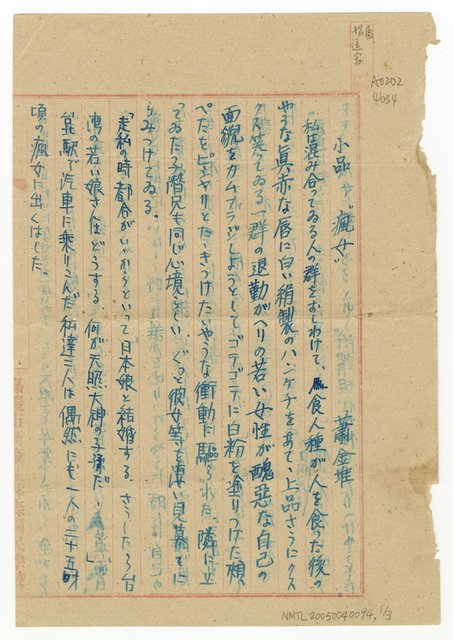 A0202
4634
小品 瘋女 蕭金堆
「私は混み合ってゐる人の群をおしわけて、食人種が人を食った後の
やうな眞赤な唇に白い絹製のハンケチをあて、上品さうにクス
クス笑ってゐる一群の退勤がヘりの若い女性が醜惡な自己の
面貌をカムフラジしようとしてゴテゴテに白粉を塗りつけた頬
ぺたをピシャリとたゝきつけたいやうな衝動に驅られた。隣に立
ってゐたる潛兄も同じ心境らしい、ぐっと彼女等を凄い見幕でに
らみつけてゐる。
「走私の時都合がいゝからといって日本娘と結婚する。さうしたら台
湾の若い娘さんはどうする。何が天照大神の子孫だ!」
驛で汽車に乗りこんだ私達二人は偶然にも一人の二十五、六
頃の瘋女に出くはした。
NMTL20050040094, 1/3